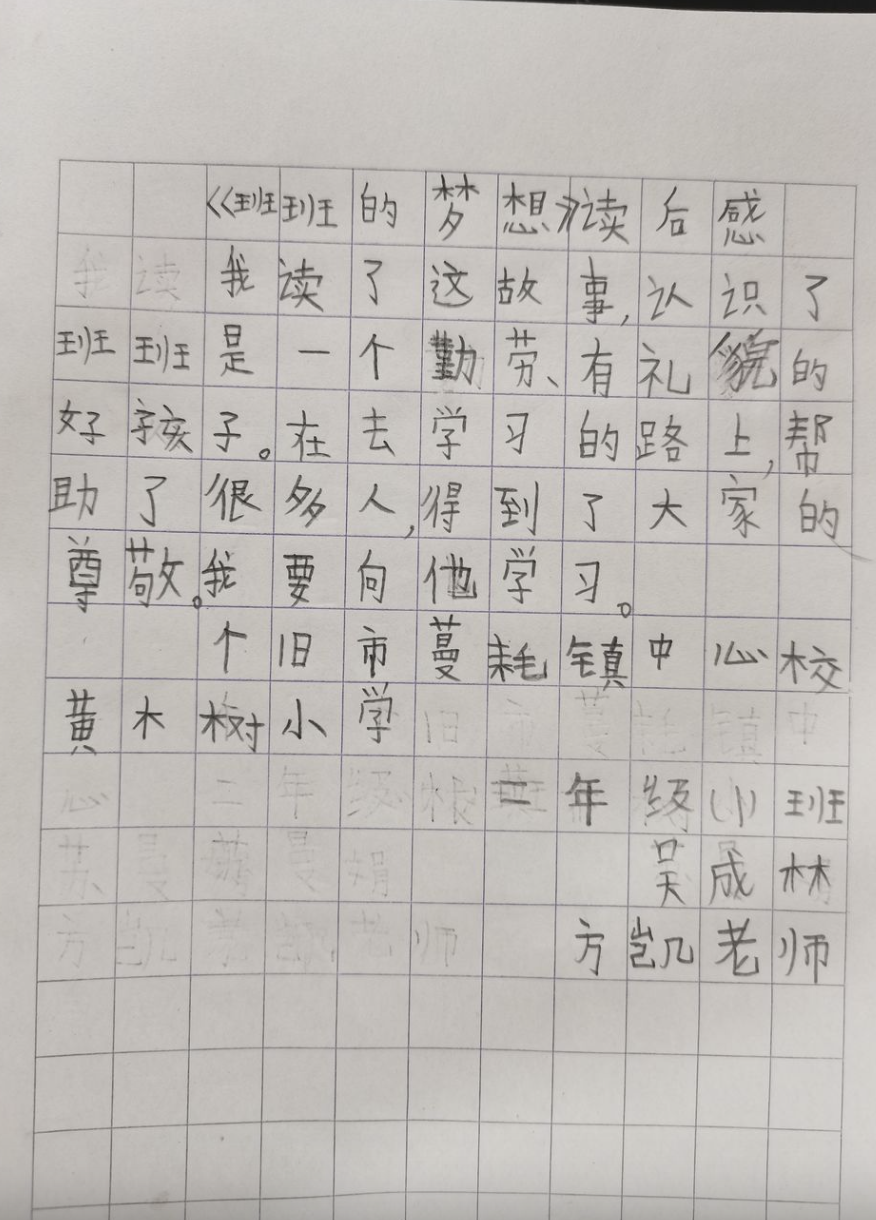 《班班的梦想》读后感
我读了这故事,认识了
班班是一个勤劳、有礼貌的
好孩子。在去学习的路上,帮
助了很多人,得到了大家的
尊敬。我要向他学习。
个旧市蔓耗镇中心校
黄木树小学
二年级(1)班
吴成林
方凯老师